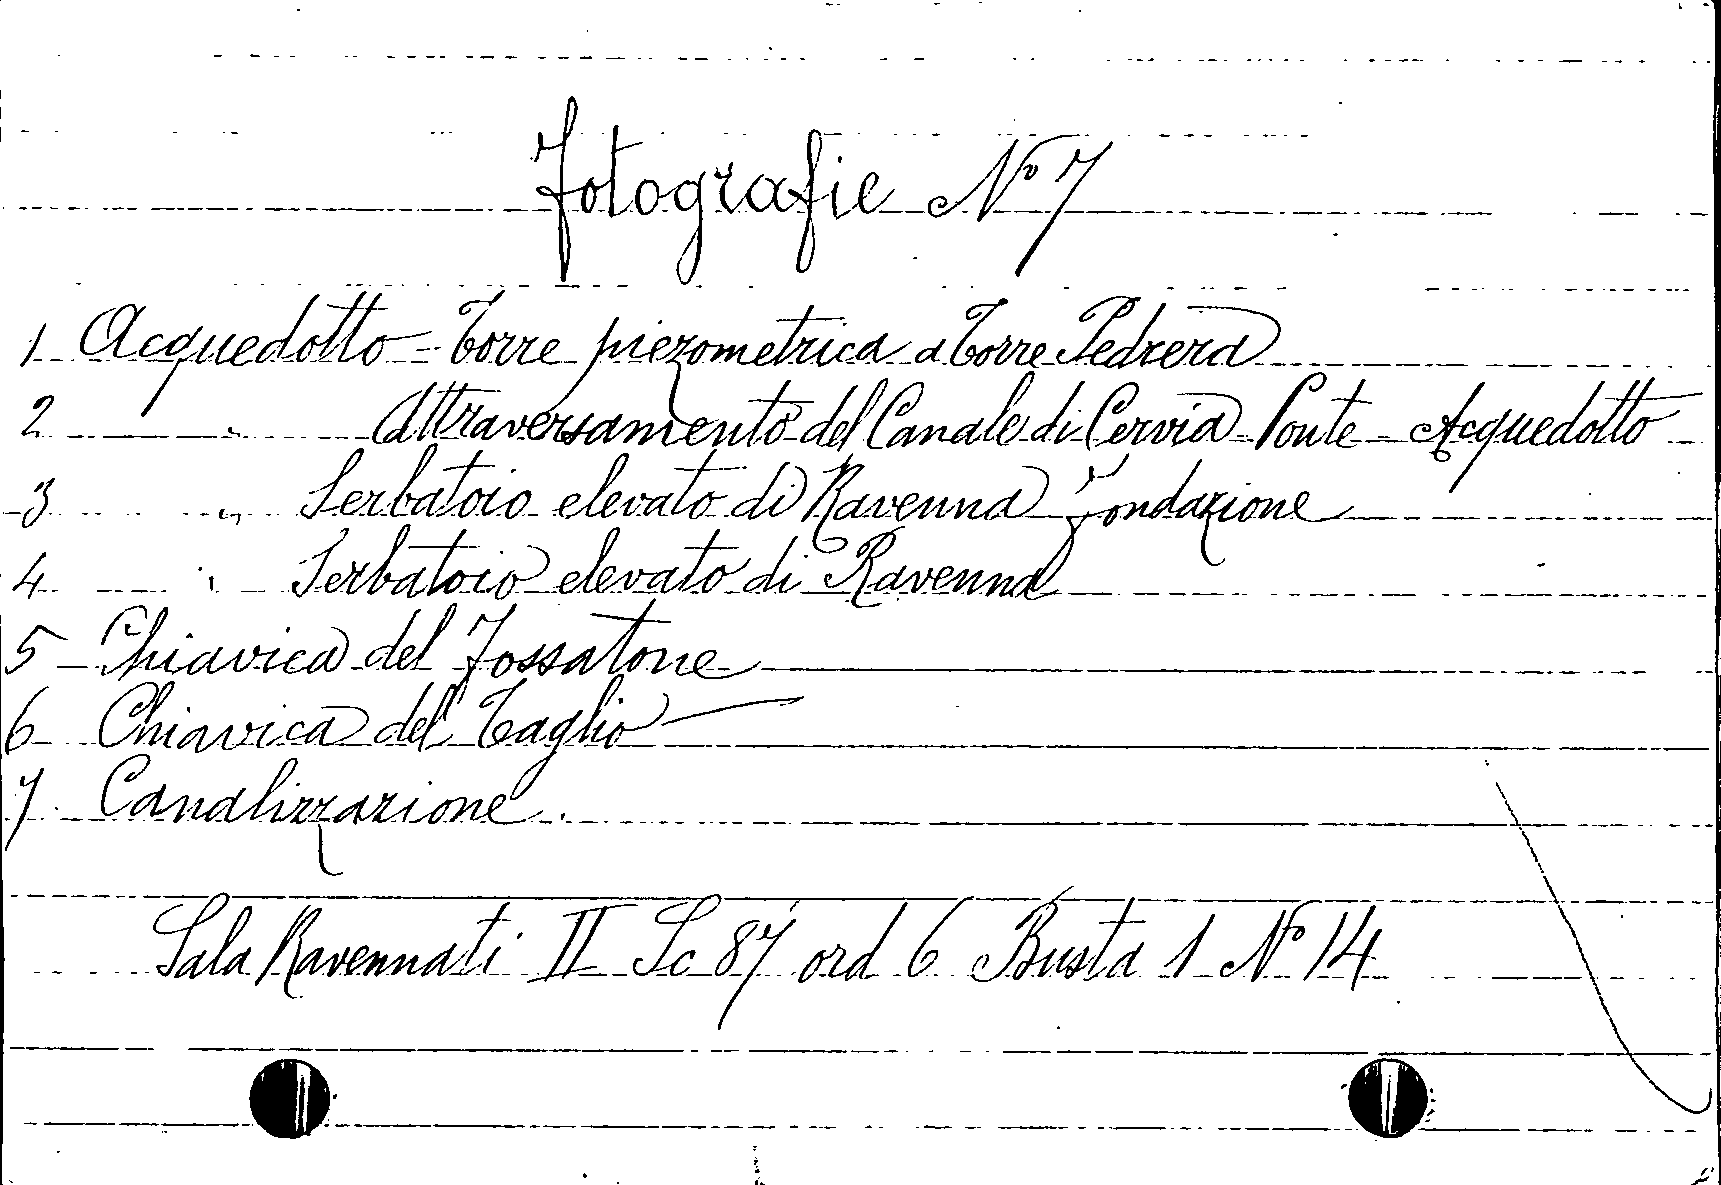 Fotografie N° 7
1 Acquedotto - Torre piezometrica a Torre Pedrera
2 " Attraversamento del Canale di Cervia Ponte - Acquedotto
3 " Serbatoio elevato di Ravenna Fondazione
4 " Serbatoio elevato di Ravenna
5 Chiavica del Fossatone
6 Chiavica del Taglio
7 Canalizzazione.
Sala Ravennati II Sc 87 ord 6 Busta 1 N° 14